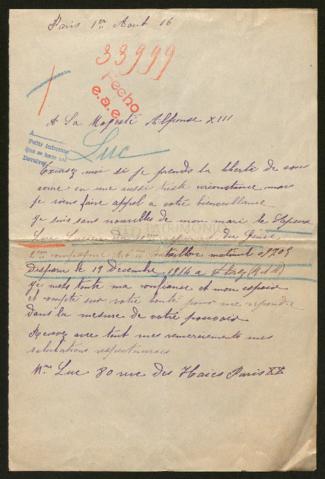 Paris 1er Aout 16
33999
fecho
e.a.e.
A Sa Majesté Alphonse XIII
Luc
Excusez moi si je prends la liberté de vous
dans une aussi triste circonstance mais
je viens faire appel a votre bienveillance
Je suis sans nouvelle de mon mari le Sapeur
Luc du Génie
Bataillon matricule
Disparu le 19 Decembre 1914 a
Je mets toute ma confiance et mon espoir
et compte sur votre bonté pour me repondre
dans la mesure de votre pouvoir
Recevez avec tout mes remerciements mes
salutations respectueuses
Mme Luc 80 rue des Haies Paris XXe